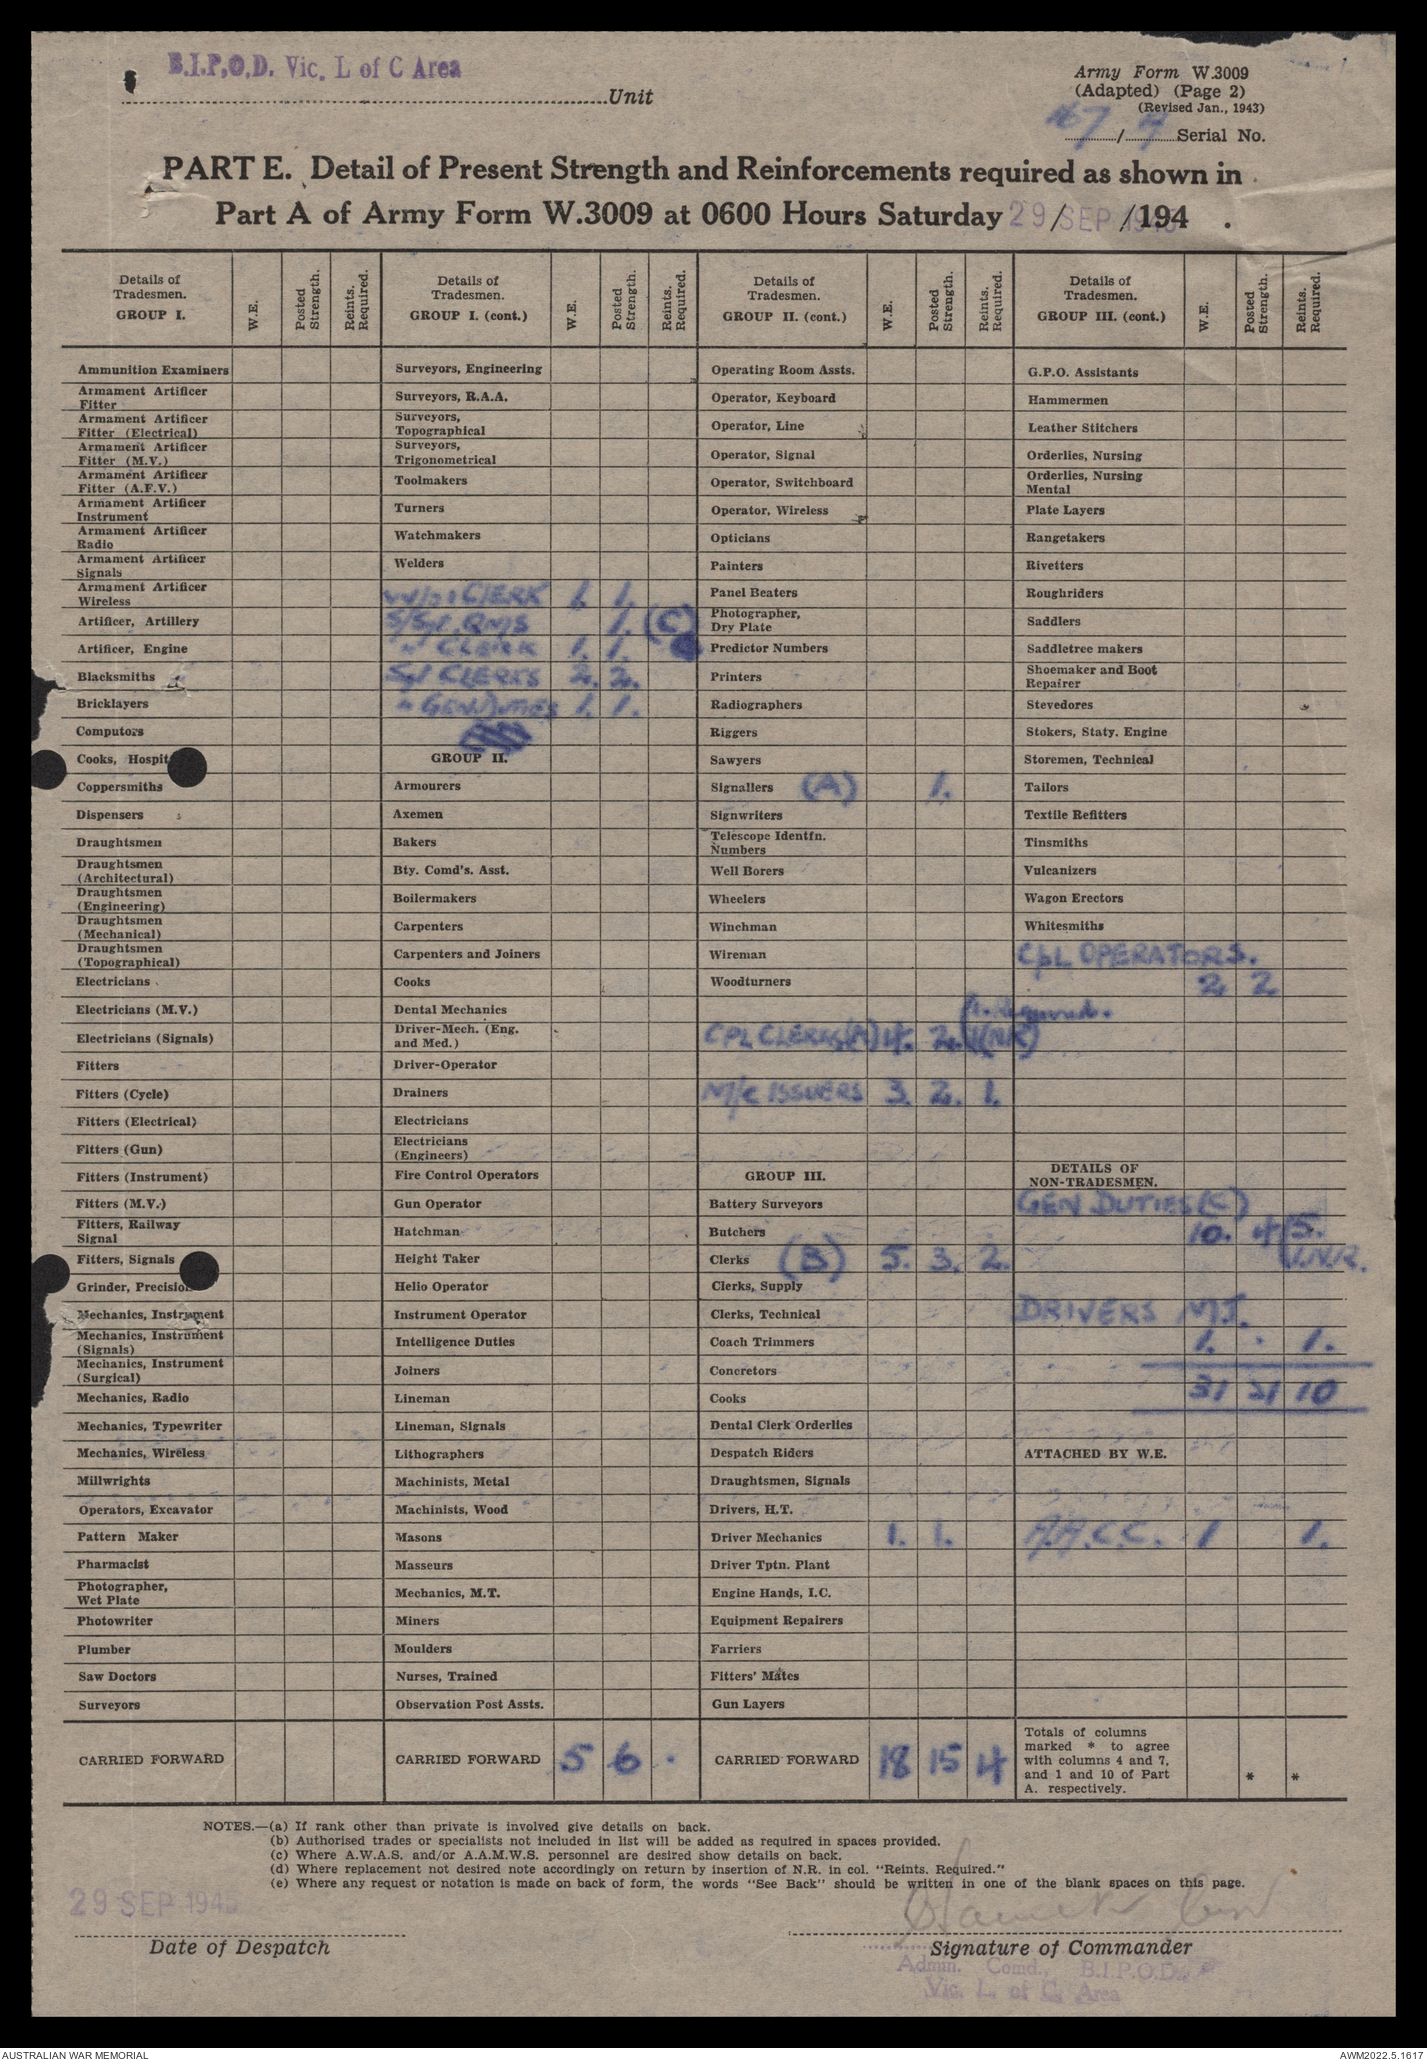 B.I.P.O.D. Vic. L of C Area
Unit
Army Form W.3009
(Adapted) (Page 2)
(Revised Jan., 1943)
167 / 4 Serial No.
PART E. Detail of Present Strength and Reinforcements required as shown in
Part A of Army Form W.3009 at 0600 Hours Saturday 29 / SEP / 194 .
Details of Tradesmen. GROUP I. W.E. Posted Strength. Reints. Required.
Ammunition Examiners
Armament Artificer Fitter
Armament Artificer Fitter (Electrical)
Armament Artificer Fitter (M.V.)
Armament Artificer Fitter (A.F.V.)
Armament Artificer Instrument
Armament Artificer Radio
Armament Artificer Signals
Armament Artificer Wireless
Artificer, Artillery
Artificer, Engine
Blacksmiths
Bricklayers
Computors
Cooks, Hospit
Coppersmiths
Dispensers
Draughtsmen
Draughtsmen (Architectural)
Draughtsmen (Engineering)
Draughtsmen (Mechanical)
Draughtsmen (Topographical)
Electricians
Electricians (M.V.)
Electricians (Signals)
Fitters
Fitters (Cycle)
Fitters (Electrical)
Fitters (Gun)
Fitters (Instrument)
Fitters (M.V.)
Fitters, Railway Signal
Fitters, Signals
Grinder, Precision
Mechanics, Instrument
Mechanics, Instrument (Signals)
Mechanics, Instrument (Surgical)
Mechanics, Radio
Mechanics, Typewriter
Mechanics, Wireless
Millwrights
Operators, Excavator
Pattern Maker
Pharmacist
Photographer, Wet Plate
Photowriter
Plumber
Saw Doctors
Surveyors
CARRIED FORWARD
Details of Tradesmen. GROUP I. (cont.) W.E. Posted Strength. Reints. Required.
Surveyors, Engineering
Surveyors, R.A.A.
Surveyors, Topographical
Surveyors, Trigonometrical
Toolmakers
Turners
Watchmakers
Welders
CLERK 1. 1.
S/Sgt. QMS 1. (C)
" CLERK 1. 1.
Sgt CLERKS 2. 2.
" GEN DUTIES 1. 1.
GROUP II.
Armourers
Axemen
Bakers
Bty. Comd's. Asst.
Boilermakers
Carpenters
Carpenters and Joiners
Cooks
Dental Mechanics
Driver-Mech. (Eng. and Med.)
Driver-Operator
Drainers
Electricians
Electricians (Engineers)
Fire Control Operators
Gun Operator
Hatchman
Height Taker
Helio Operator
Instrument Operator
Intelligence Duties
Joiners
Lineman
Lineman, Signals
Lithographers
Machinists, Metal
Machinists, Wood
Masons
Masseurs
Mechanics, M.T.
Miners
Moulders
Nurses, Trained
Observation Post Assts.
CARRIED FORWARD 5 6 .
Details of Tradesmen. GROUP II. (cont.) W.E. Posted Strength. Reints. Required.
Operating Room Assts.
Operator, Keyboard
Operator, Line
Operator, Signal
Operator, Switchboard
Operator, Wireless
Opticians
Painters
Panel Beaters
Photographer, Dry Plate
Predictor Numbers
Printers
Radiographers
Riggers
Sawyers
Signallers (A) 1.
Signwriters
Telescope Identfn. Numbers
Well Borers
Wheelers
Winchman
Wireman
Woodturners
Required.
CPL CLERKS (A) 4. 2. 1(NR)
M/C ISSUERS 3. 2. 1.
GROUP III.
Battery Surveyors
Butchers
Clerks (B) 5. 3. 2.
Clerks, Supply
Clerks, Technical
Coach Trimmers
Concretors
Cooks
Dental Clerk Orderlies
Despatch Riders
Draughtsmen, Signals
Drivers, H.T.
Driver Mechanics 1. 1.
Driver Tptn. Plant
Engine Hands, I.C.
Equipment Repairers
Farriers
Fitters' Mates
Gun Layers
CARRIED FORWARD 18 15 4
Details of Tradesmen. GROUP III. (cont.) W.E. Posted Strength. Reints. Required.
G.P.O. Assistants
Hammermen
Leather Stitchers
Orderlies, Nursing
Orderlies, Nursing Mental
Plate Layers
Rangetakers
Rivetters
Roughriders
Saddlers
Saddletree makers
Shoemaker and Boot Repairer
Stevedores
Stokers, Staty. Engine
Storemen, Technical
Tailors
Textile Refitters
Tinsmiths
Vulcanizers
Wagon Erectors
Whitesmiths
CPL OPERATORS.
2 2
DETAILS OF NON-TRADESMEN.
GEN DUTIES (C)
10. 4 (5.
1.N.R.
DRIVERS M.T.
1. . 1.
31 21 10
ATTACHED BY W.E.
A.A.C.C. 1 1.
Totals of columns marked * to agree with columns 4 and 7, and 1 and 10 of Part A. respectively. * *
NOTES.—(a) If rank other than private is involved give details on back.
(b) Authorised trades or specialists not included in list will be added as required in spaces provided.
(c) Where A.W.A.S. and/or A.A.M.W.S. personnel are desired show details on back.
(d) Where replacement not desired note accordingly on return by insertion of N.R. in col. "Reints. Required."
(e) Where any request or notation is made on back of form, the words "See Back" should be written in one of the blank spaces on this page.
29 SEP 194
Date of Despatch
Signature of Commander
Admin. Comd., B.I.P.O.D.
Vic. L. of C. Area
AUSTRALIAN WAR MEMORIAL
AWM2022.5.1617